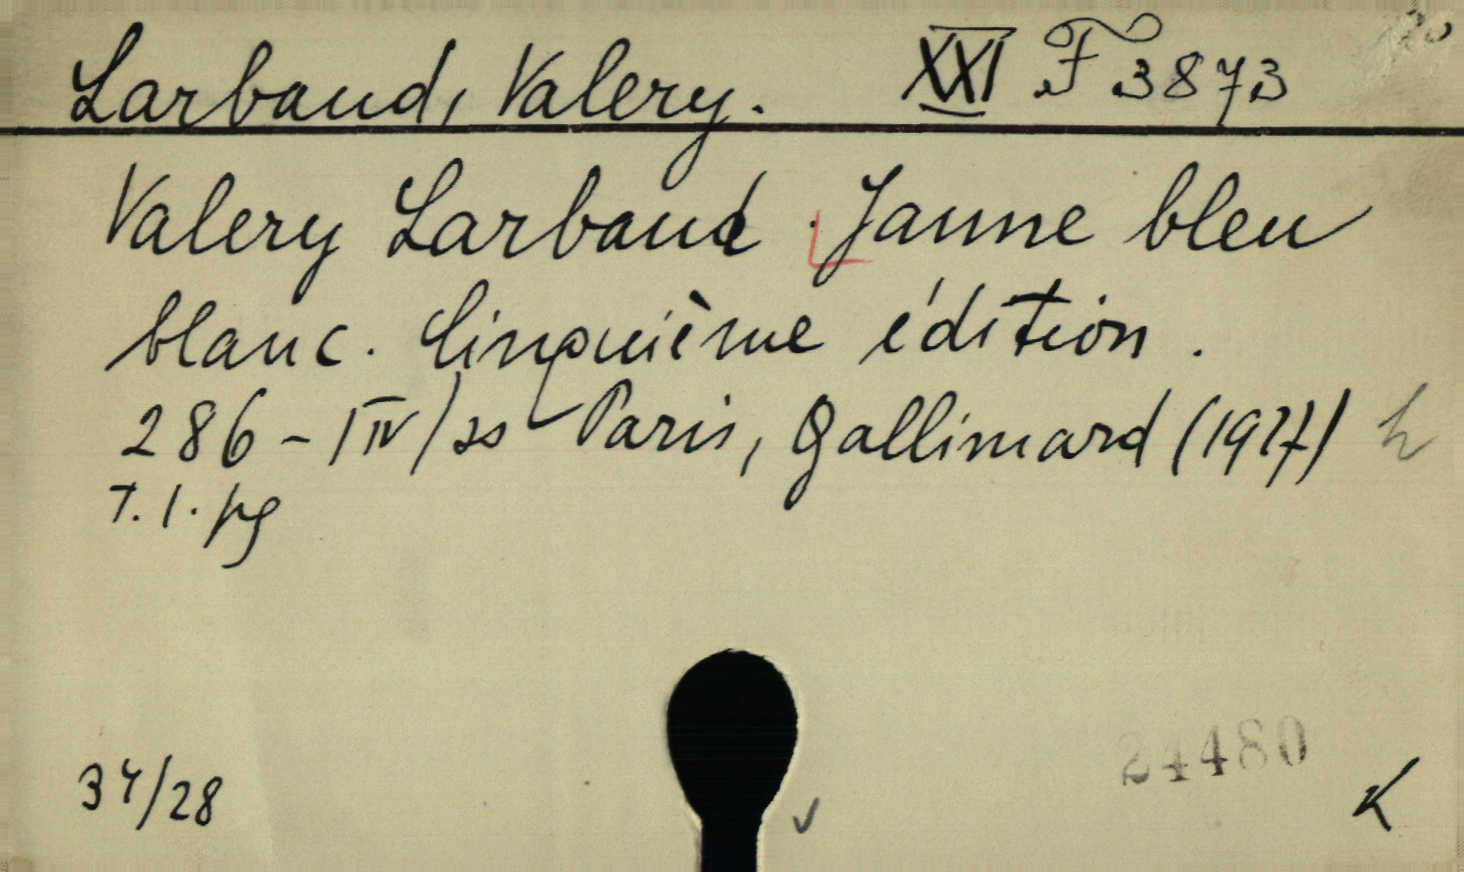 Larbaud, Valery. XXI F 3873
Valery Larbaud. Jaune bleu
blanc. Cinquième édition.
286 - IIV/ss Paris, Gallimard (1927) h
T. 1. pg
34/28
24480
K